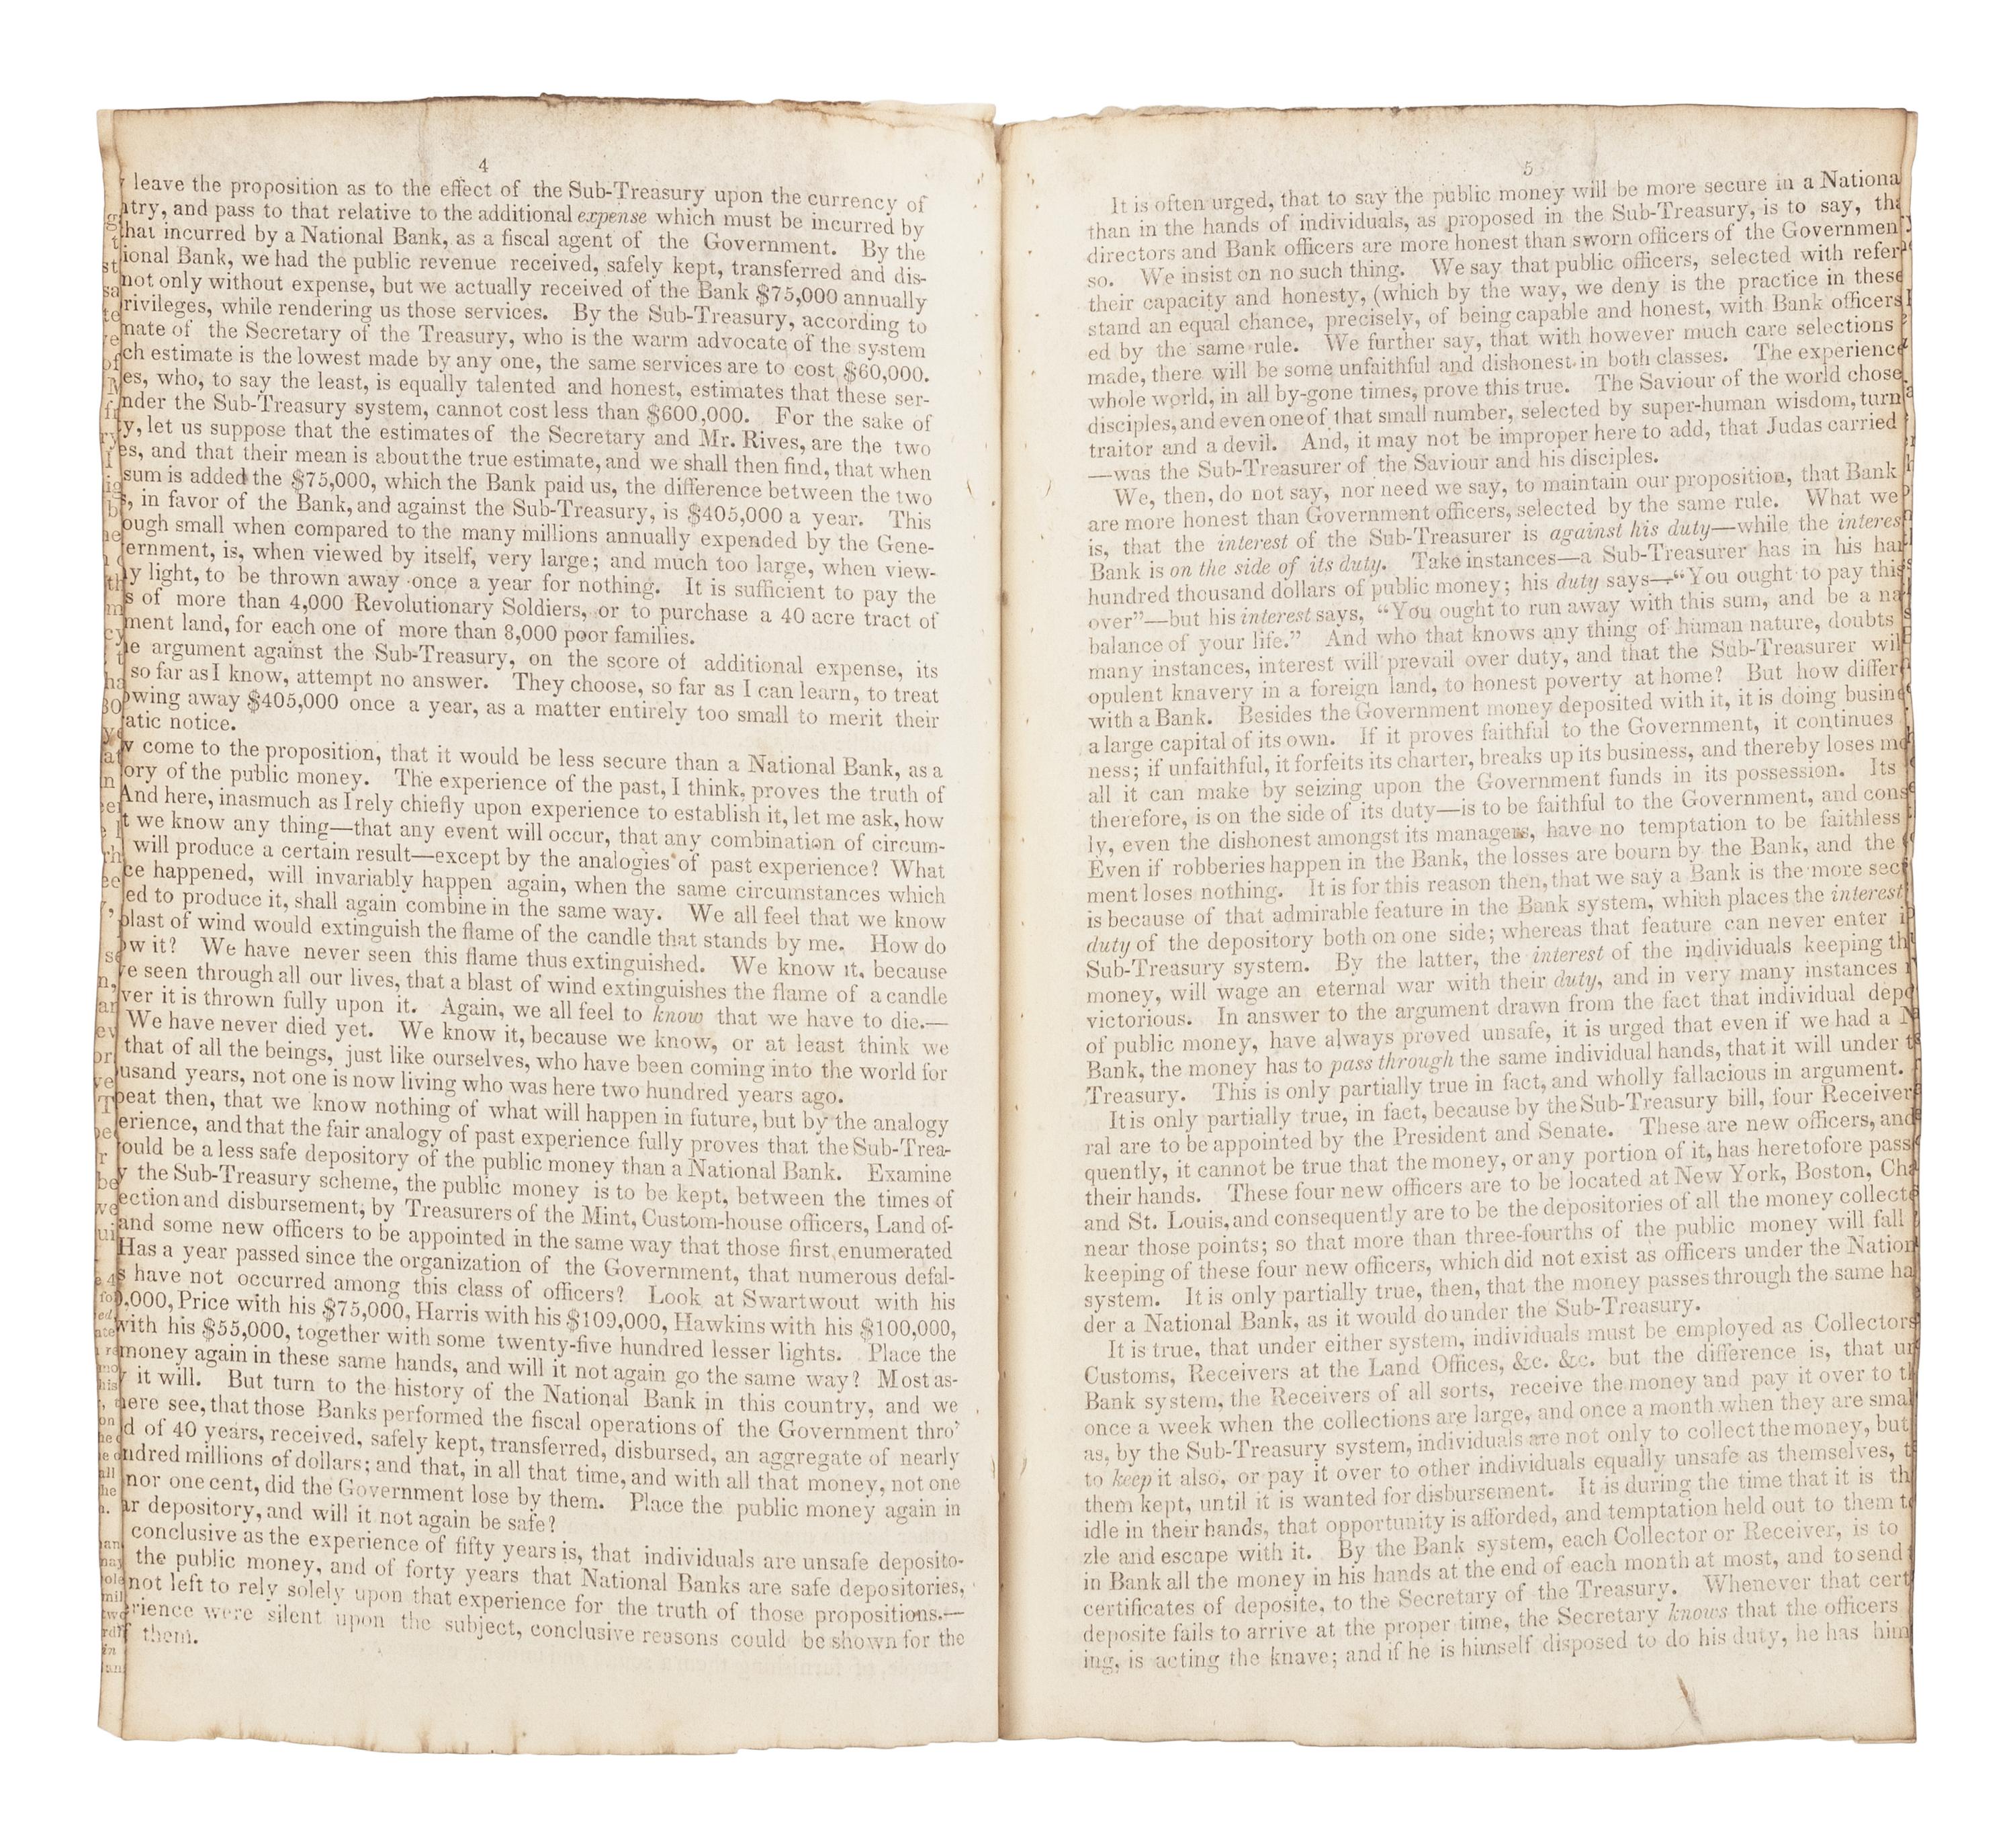 4
leave the proposition as to the effect of the Sub-Treasury upon the currency of
try, and pass to that relative to the additional expense which must be incurred by
that incurred by a National Bank, as a fiscal agent of the Government. By the
ional Bank, we had the public revenue received, safely kept, transferred and dis-
not only without expense, but we actually received of the Bank $75,000 annually
rivileges, while rendering us those services. By the Sub-Treasury, according to
mate of the Secretary of the Treasury, who is the warm advocate of the system
ch estimate is the lowest made by any one, the same services are to cost $60,000.
es, who, to say the least, is equally talented and honest, estimates that these ser-
nder the Sub-Treasury system, cannot cost less than $600,000. For the sake of
y, let us suppose that the estimates of the Secretary and Mr. Rives, are the two
es, and that their mean is about the true estimate, and we shall then find, that when
sum is added the $75,000, which the Bank paid us, the difference between the two
s, in favor of the Bank, and against the Sub-Treasury, is $405,000 a year. This
ough small when compared to the many millions annually expended by the Gene-
ernment, is, when viewed by itself, very large; and much too large, when view-
y light, to be thrown away once a year for nothing. It is sufficient to pay the
s of more than 4,000 Revolutionary Soldiers, or to purchase a 40 acre tract of
ment land, for each one of more than 8,000 poor families.
e argument against the Sub-Treasury, on the score of additional expense, its
so far as I know, attempt no answer. They choose, so far as I can learn, to treat
owing away $405,000 once a year, as a matter entirely too small to merit their
atic notice.
w come to the proposition, that it would be less secure than a National Bank, as a
ory of the public money. The experience of the past, I think, proves the truth of
And here, inasmuch as I rely chiefly upon experience to establish it, let me ask, how
t we know any thing—that any event will occur, that any combination of circum-
will produce a certain result—except by the analogies of past experience? What
ce happened, will invariably happen again, when the same circumstances which
ed to produce it, shall again combine in the same way. We all feel that we know
blast of wind would extinguish the flame of the candle that stands by me. How do
ow it? We have never seen this flame thus extinguished. We know it, because
e seen through all our lives, that a blast of wind extinguishes the flame of a candle
ver it is thrown fully upon it. Again, we all feel to know that we have to die.—
We have never died yet. We know it, because we know, or at least think we
that of all the beings, just like ourselves, who have been coming into the world for
usand years, not one is now living who was here two hundred years ago.
peat then, that we know nothing of what will happen in future, but by the analogy
erience, and that the fair analogy of past experience fully proves that the Sub-Trea-
ould be a less safe depository of the public money than a National Bank. Examine
y the Sub-Treasury scheme, the public money is to be kept, between the times of
ection and disbursement, by Treasurers of the Mint, Custom-house officers, Land of-
and some new officers to be appointed in the same way that those first enumerated
Has a year passed since the organization of the Government, that numerous defal-
s have not occurred among this class of officers? Look at Swartwout with his
0,000, Price with his $75,000, Harris with his $109,000, Hawkins with his $100,000,
with his $55,000, together with some twenty-five hundred lesser lights. Place the
money again in these same hands, and will it not again go the same way? Most as-
y it will. But turn to the history of the National Bank in this country, and we
here see, that those Banks performed the fiscal operations of the Government thro'
d of 40 years, received, safely kept, transferred, disbursed, an aggregate of nearly
undred millions of dollars; and that, in all that time, and with all that money, not one
nor one cent, did the Government lose by them. Place the public money again in
ar depository, and will it not again be safe?
conclusive as the experience of fifty years is, that individuals are unsafe deposito-
the public money, and of forty years that National Banks are safe depositories,
not left to rely solely upon that experience for the truth of those propositions.—
rience were silent upon the subject, conclusive reasons could be shown for the
f them.
5
It is often urged, that to say the public money will be more secure in a Nationa
than in the hands of individuals, as proposed in the Sub-Treasury, is to say, tha
directors and Bank officers are more honest than sworn officers of the Governmen
so. We insist on no such thing. We say that public officers, selected with refer
their capacity and honesty, (which by the way, we deny is the practice in these
stand an equal chance, precisely, of being capable and honest, with Bank officers
ed by the same rule. We further say, that with however much care selections
made, there will be some unfaithful and dishonest in both classes. The experience
whole world, in all by-gone times, prove this true. The Saviour of the world chose
disciples, and even one of that small number, selected by super-human wisdom, turn
traitor and a devil. And, it may not be improper here to add, that Judas carried
—was the Sub-Treasurer of the Saviour and his disciples.
We, then, do not say, nor need we say, to maintain our proposition, that Bank
are more honest than Government officers, selected by the same rule. What we
is, that the interest of the Sub-Treasurer is against his duty—while the interes
Bank is on the side of its duty. Take instances—a Sub-Treasurer has in his ha
hundred thousand dollars of public money; his duty says—"You ought to pay this
over"—but his interest says, "You ought to run away with this sum, and be a na
balance of your life." And who that knows any thing of human nature, doubts
many instances, interest will prevail over duty, and that the Sub-Treasurer wil
opulent knavery in a foreign land, to honest poverty at home? But how differ
with a Bank. Besides the Government money deposited with it, it is doing busin
a large capital of its own. If it proves faithful to the Government, it continues
ness; if unfaithful, it forfeits its charter, breaks up its business, and thereby loses mo
all it can make by seizing upon the Government funds in its possession. Its
therefore, is on the side of its duty—is to be faithful to the Government, and cons
ly, even the dishonest amongst its managers, have no temptation to be faithless
Even if robberies happen in the Bank, the losses are bourn by the Bank, and the
ment loses nothing. It is for this reason then, that we say a Bank is the more sec
is because of that admirable feature in the Bank system, which places the interest
duty of the depository both on one side; whereas that feature can never enter i
Sub-Treasury system. By the latter, the interest of the individuals keeping th
money, will wage an eternal war with their duty, and in very many instances
victorious. In answer to the argument drawn from the fact that individual depo
of public money, have always proved unsafe, it is urged that even if we had a N
Bank, the money has to pass through the same individual hands, that it will under t
Treasury. This is only partially true in fact, and wholly fallacious in argument.
It is only partially true, in fact, because by the Sub-Treasury bill, four Receiver
ral are to be appointed by the President and Senate. These are new officers, and
quently, it cannot be true that the money, or any portion of it, has heretofore pass
their hands. These four new officers are to be located at New York, Boston, Cha
and St. Louis, and consequently are to be the depositories of all the money collecte
near those points; so that more than three-fourths of the public money will fall
keeping of these four new officers, which did not exist as officers under the Nation
system. It is only partially true, then, that the money passes through the same ha
der a National Bank, as it would do under the Sub-Treasury.
It is true, that under either system, individuals must be employed as Collectors
Customs, Receivers at the Land Offices, &c. &c. but the difference is, that un
Bank system, the Receivers of all sorts, receive the money and pay it over to th
once a week when the collections are large, and once a month when they are smal
as, by the Sub-Treasury system, individuals are not only to collect the money, but
to keep it also, or pay it over to other individuals equally unsafe as themselves, t
them kept, until it is wanted for disbursement. It is during the time that it is th
idle in their hands, that opportunity is afforded, and temptation held out to them t
zle and escape with it. By the Bank system, each Collector or Receiver, is to
in Bank all the money in his hands at the end of each month at most, and to send
certificates of deposite, to the Secretary of the Treasury. Whenever that cert
deposite fails to arrive at the proper time, the Secretary knows that the officers
ing, is acting the knave; and if he is himself disposed to do his duty, he has him